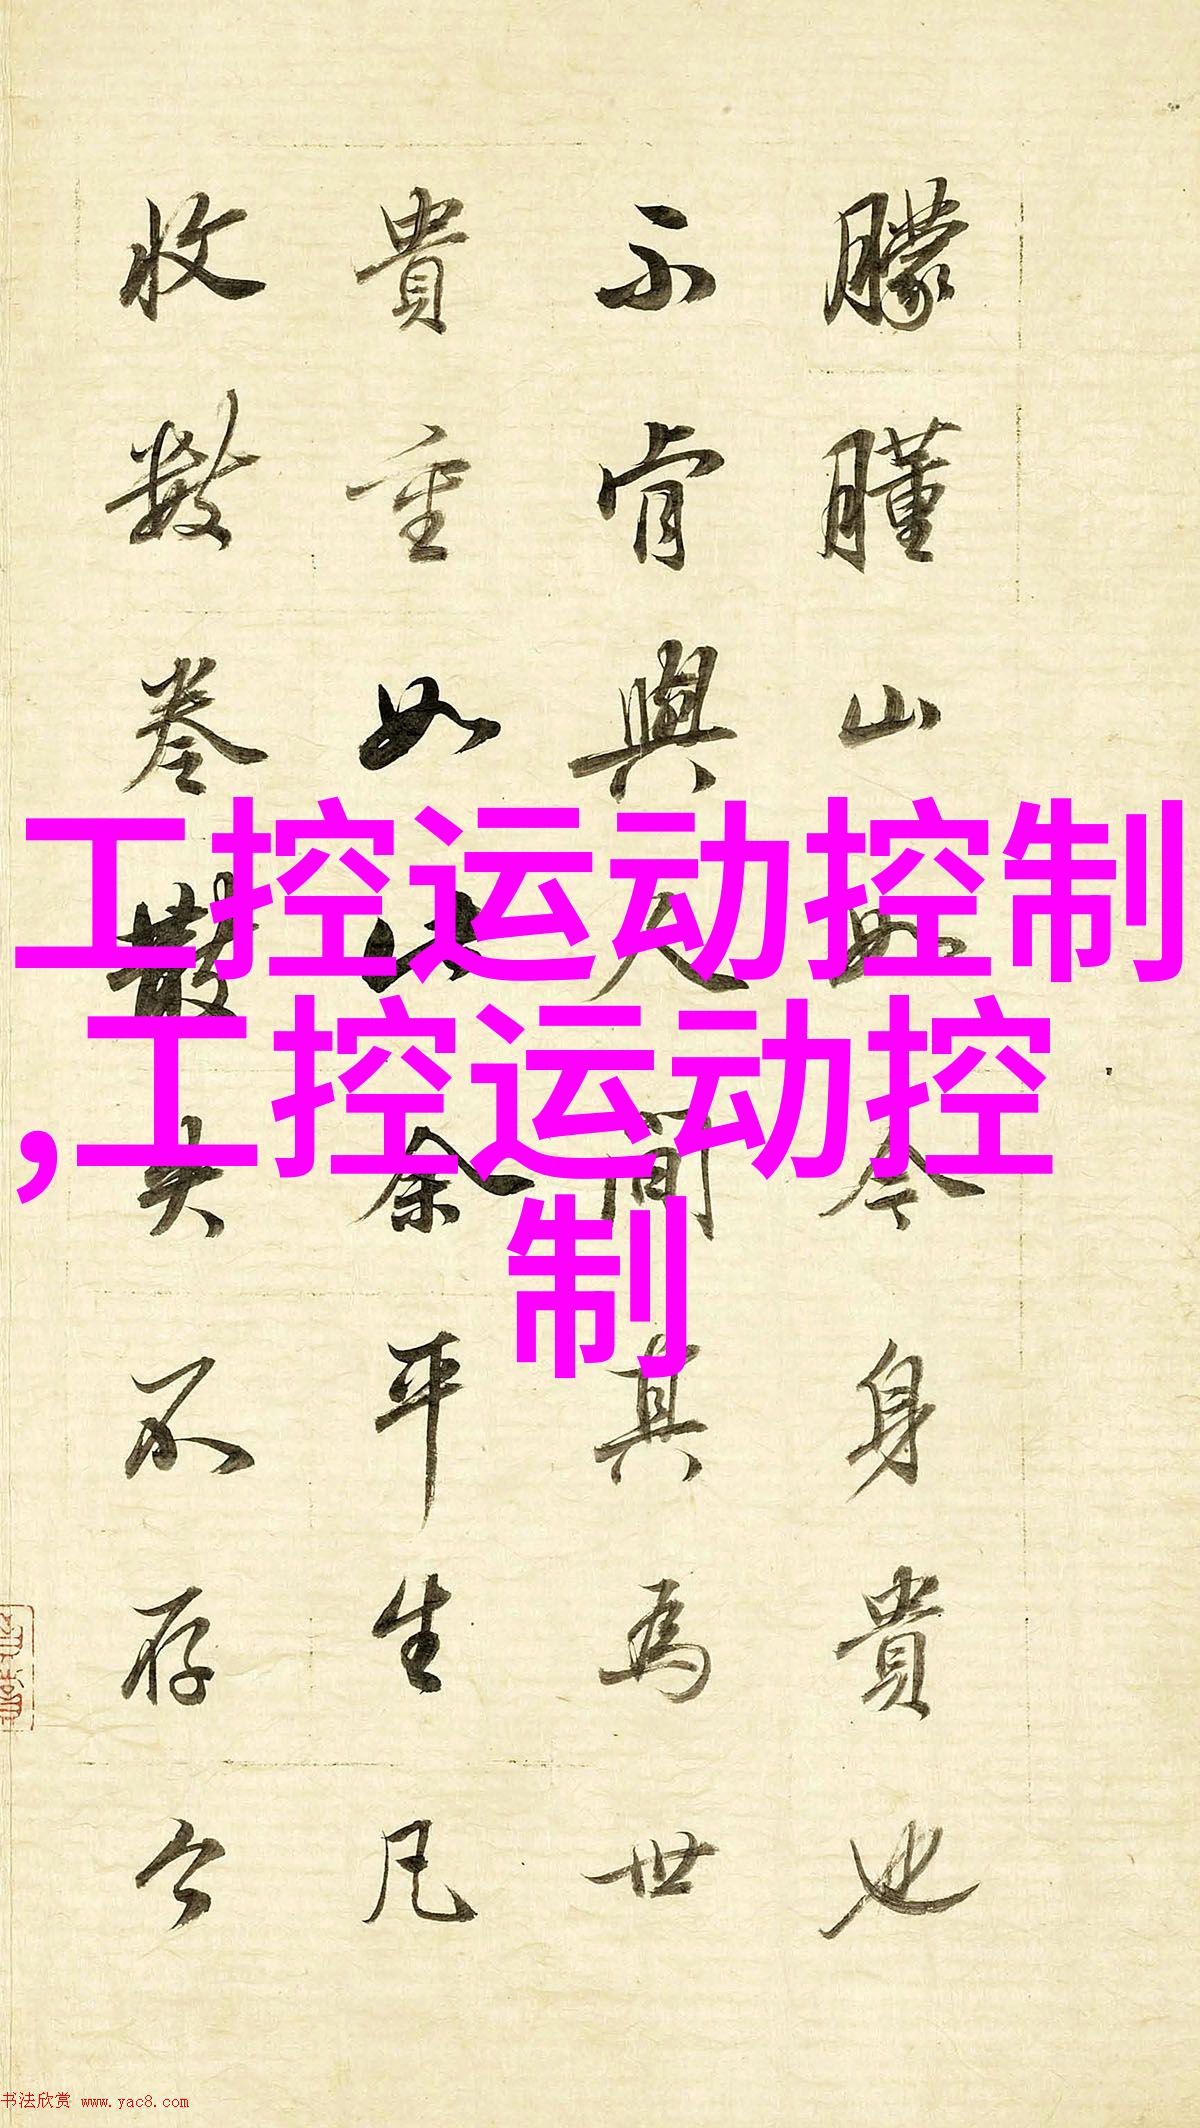 朦朣山如今身貴也
不肯與人間其為世
貴重如此余平生凡
收數卷散失不存今
工控运动控制
,工控运动控
制
书法欣赏 www.yac8.com